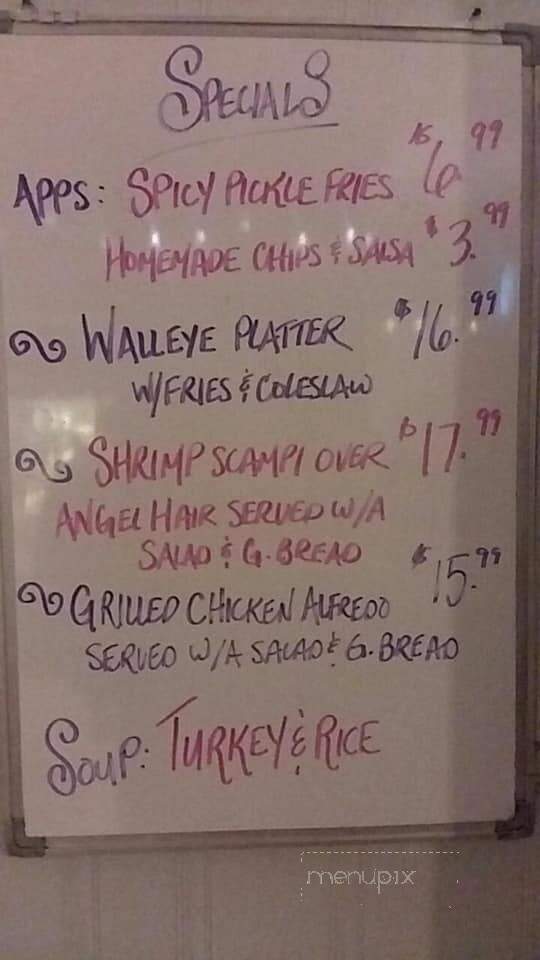 SPECIALS
APPS: SPICY PICKLE FRIES $6.99
HOMEMADE CHIPS & SALSA $3.99
WALLEYE PLATTER $16.99
W/FRIES & COLESLAW
SHRIMP SCAMPI OVER $17.99
ANGEL HAIR SERVED W/A
SALAD & G. BREAD
GRILLED CHICKEN ALFREDO $15.99
SERVED W/A SALAD & G. BREAD
SOUP: TURKEY & RICE
menupix